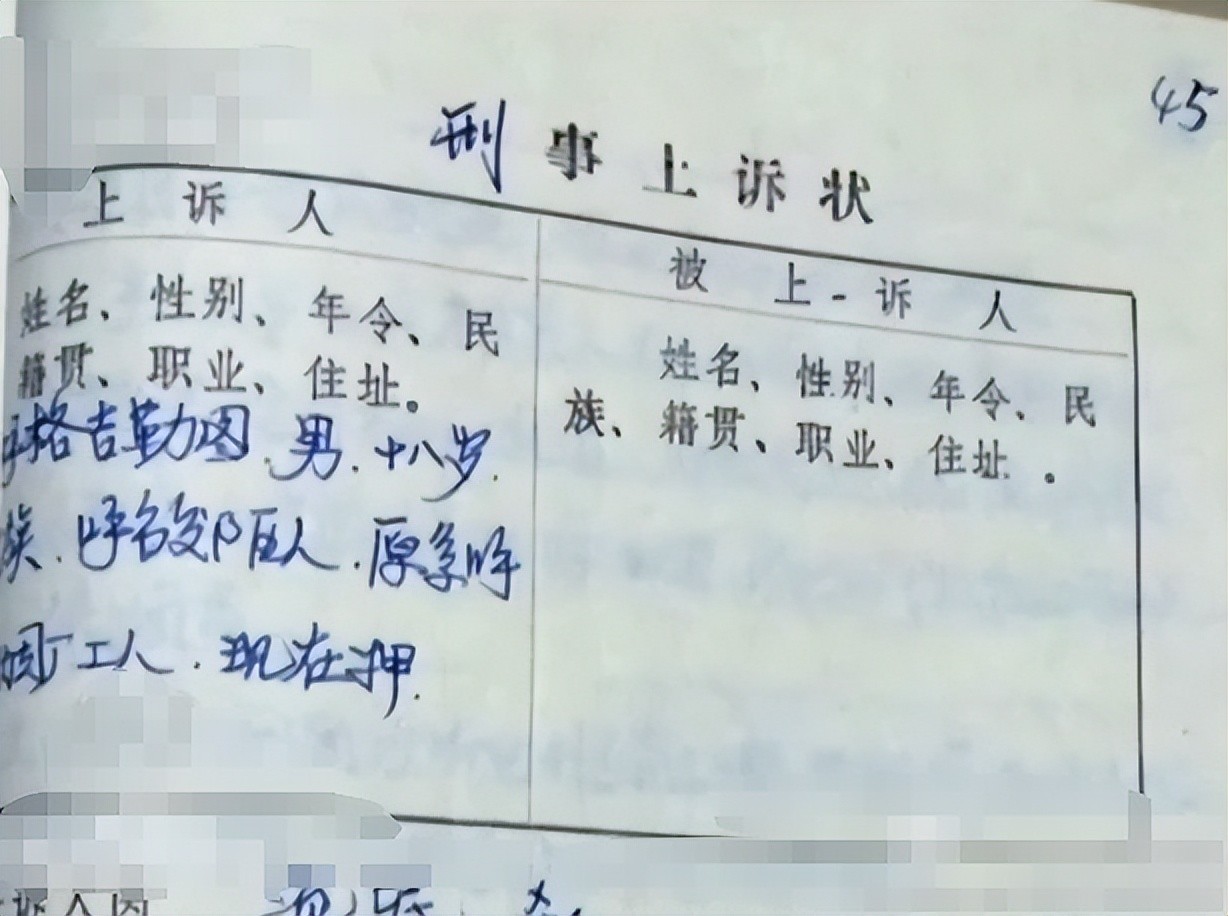 45
刑事上诉状
上诉人
姓名、性别、年令、民
籍贯、职业、住址。
格吉勒图.男.十八岁.
族.呼市郊区人.原系呼
厂工人.现在押.
被上诉人
姓名、性别、年令、民
族、籍贯、职业、住址。